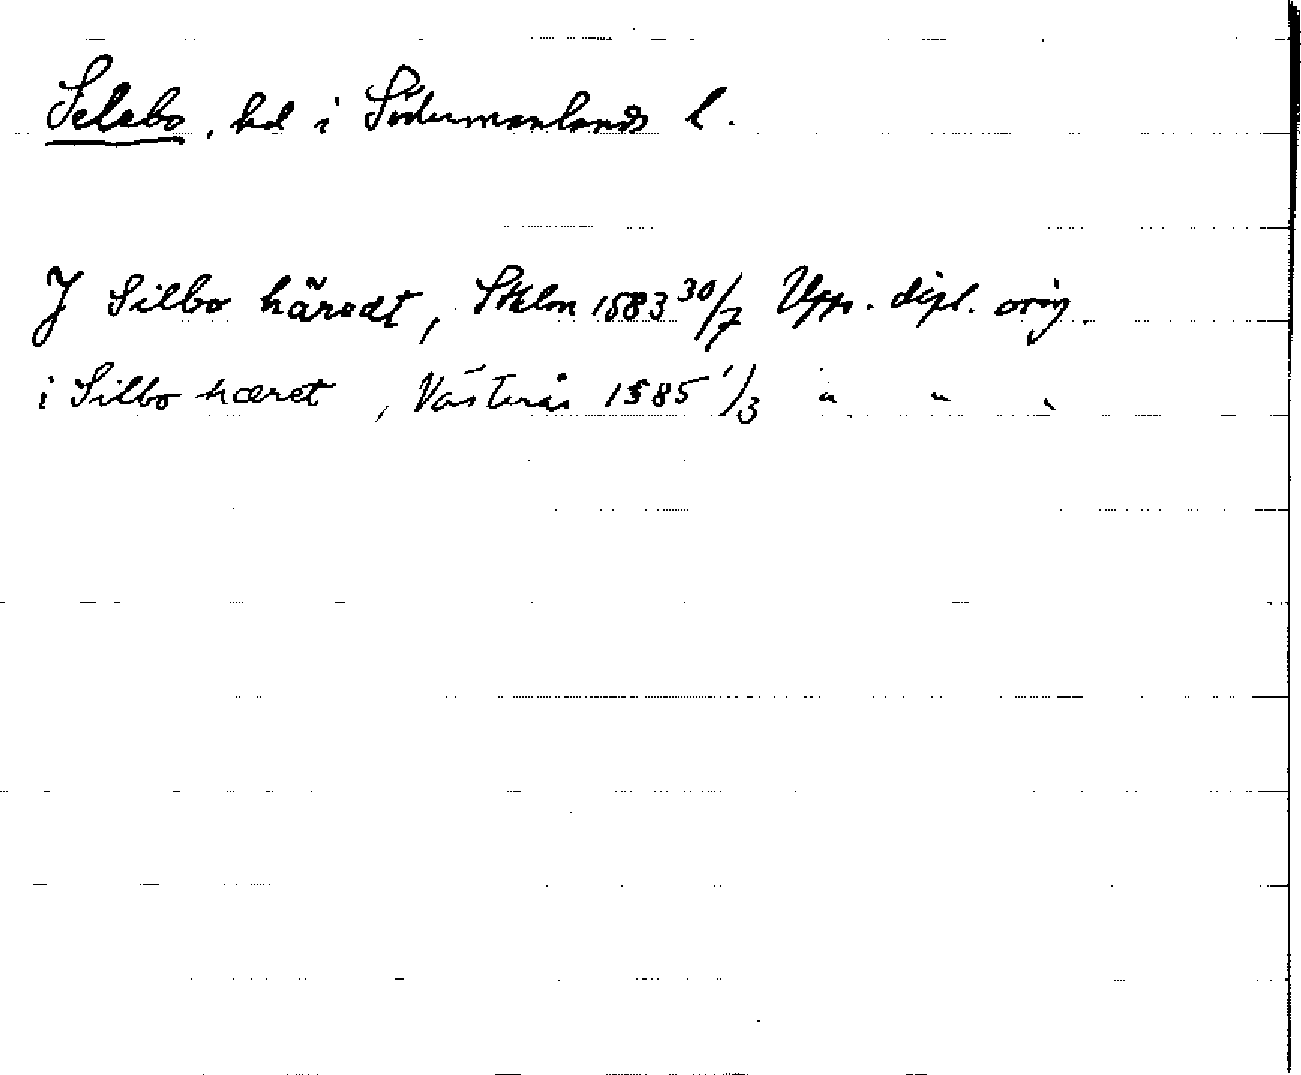 Selebo, hd i Södermanlands l.
J Silbo häredt, Sthlm 1583 30/7 Upps. dipl. orig.
i Silbo hæret, Västerås 1585 1/3 " " "